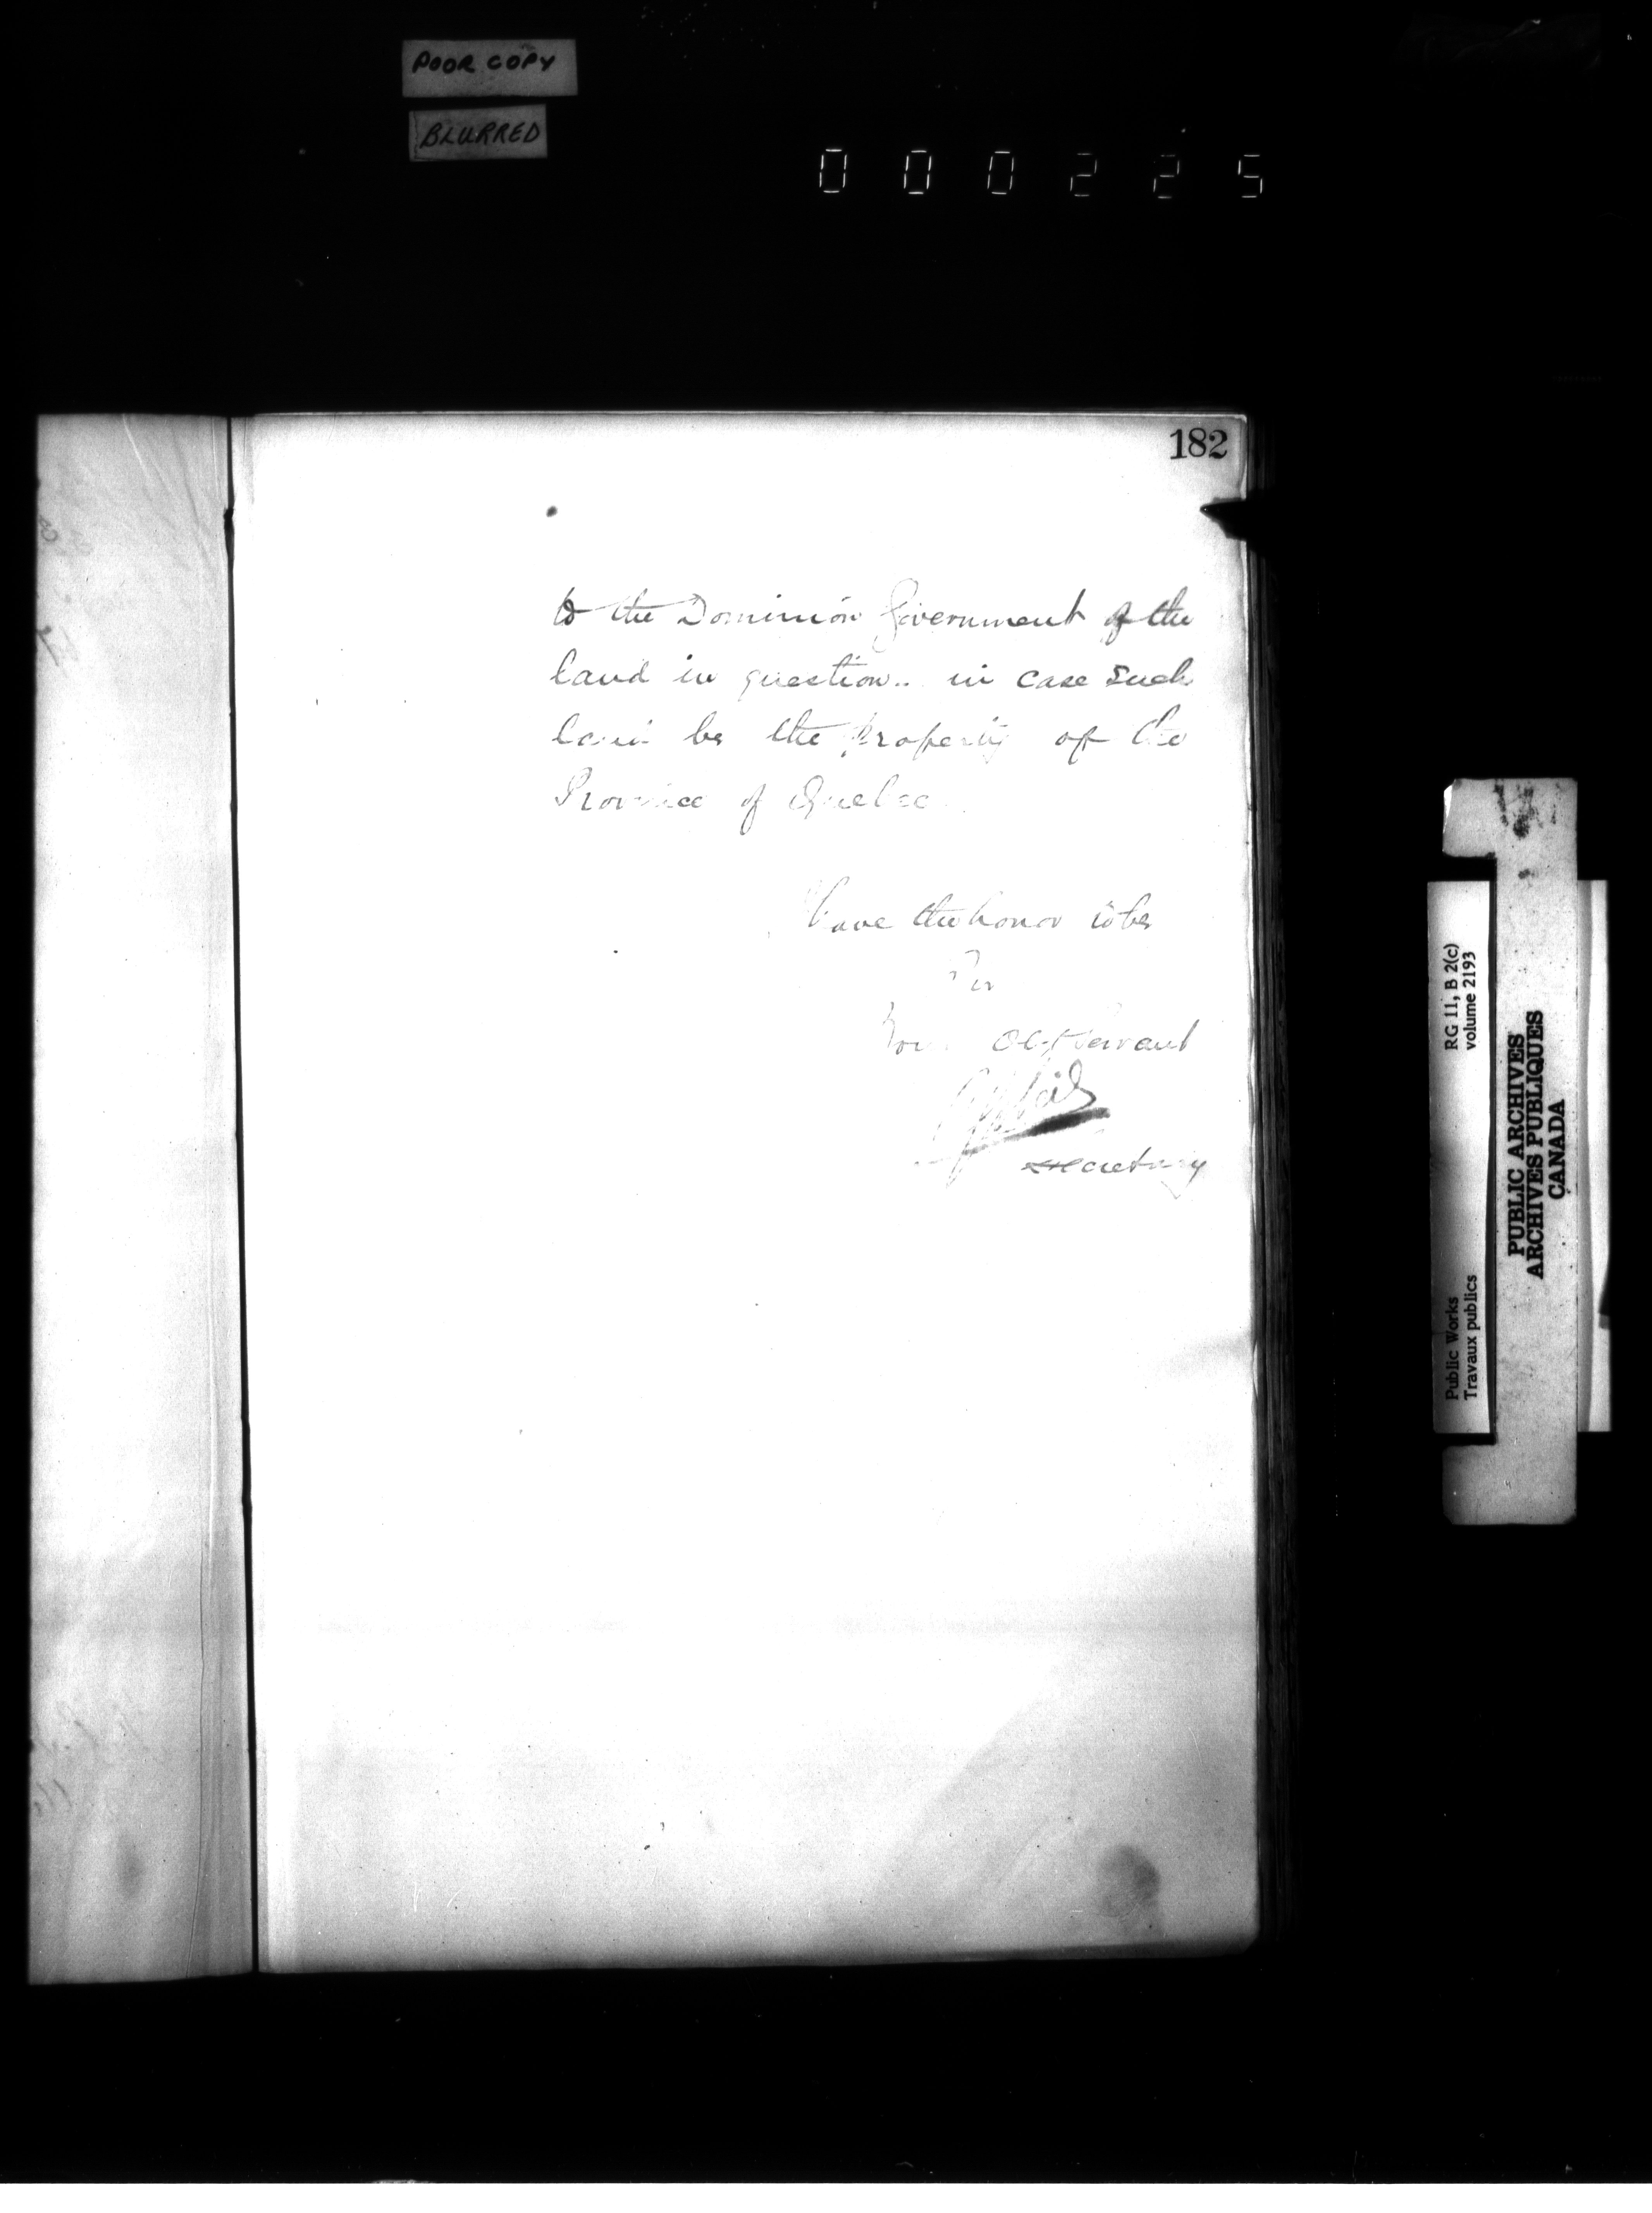 POOR COPY
BLURRED
000225
182
to the Dominion Government of the
land in question.. in case such
land be the property of the
Province of Quebec
have the honor to be
Sir
Your Obt Servant
Secretary
RG 11, B 2(c)
volume 2193
Public Works
Travaux publics
PUBLIC ARCHIVES
ARCHIVES PUBLIQUES
CANADA